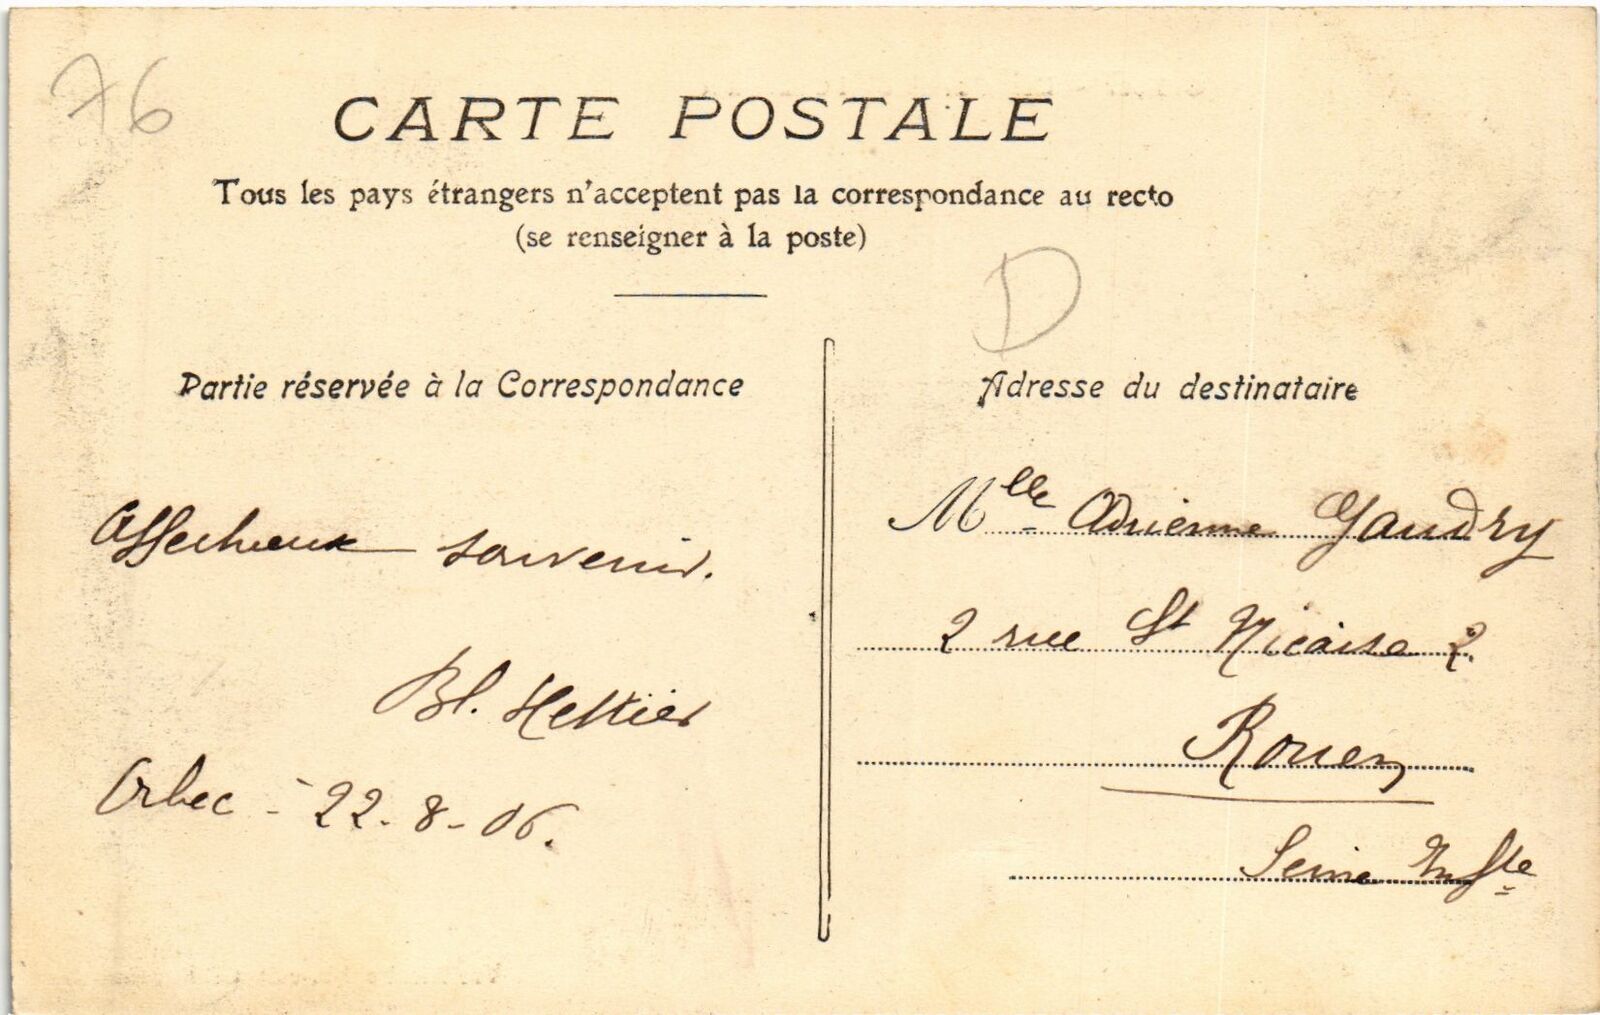 76
CARTE POSTALE
Tous les pays étrangers n'acceptent pas la correspondance au recto
(se renseigner à la poste)
D
Partie réservée à la Correspondance
Affectueux souvenir.
Bl. Hettier
Orbec - 22-8-06.
Adresse du destinataire
Mlle Adrienne Gaudry
2 rue St Nicaise 2.
Rouen
Seine Infre